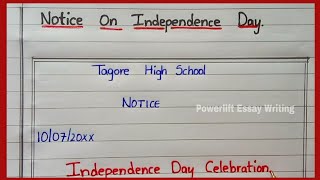 Notice On Independence Day.
Tagore High School
NOTICE
Powerlift Essay Writing
10/07/20xx
Independence Day Celebration